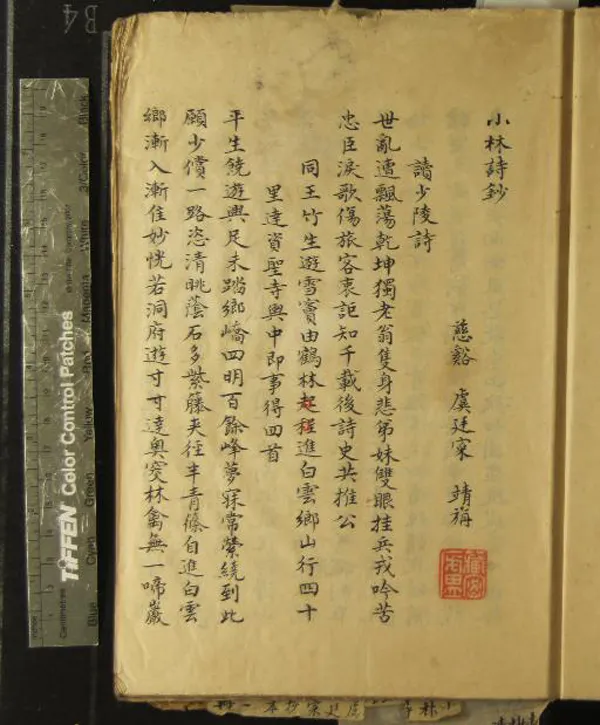 小林詩鈔
慈谿 虞廷寀 靖旃
讀少陵詩
世亂遭飄蕩乾坤獨老翁隻身悲弟妹雙眼挂兵戎吟苦
忠臣淚歌傷旅客衷詎知千載後詩史共推公
同王竹生遊雪竇由鶴林起程進白雲鄉山行四十
里達資聖寺輿中即事得四首
平生饒遊興足未踏鄉嶠四明百餘峰夢寐常縈繞到此
願少償一路恣清眺蔭石多紫藤夾徑半青篠自進白雲
鄉漸入漸佳妙恍若洞府遊寸寸達奧窔林禽無一啼巖
TIFFEN Color Control Patches
Centimetres
Blue
Green
Yellow
Red
Magenta
White
3/Color
Black
B4